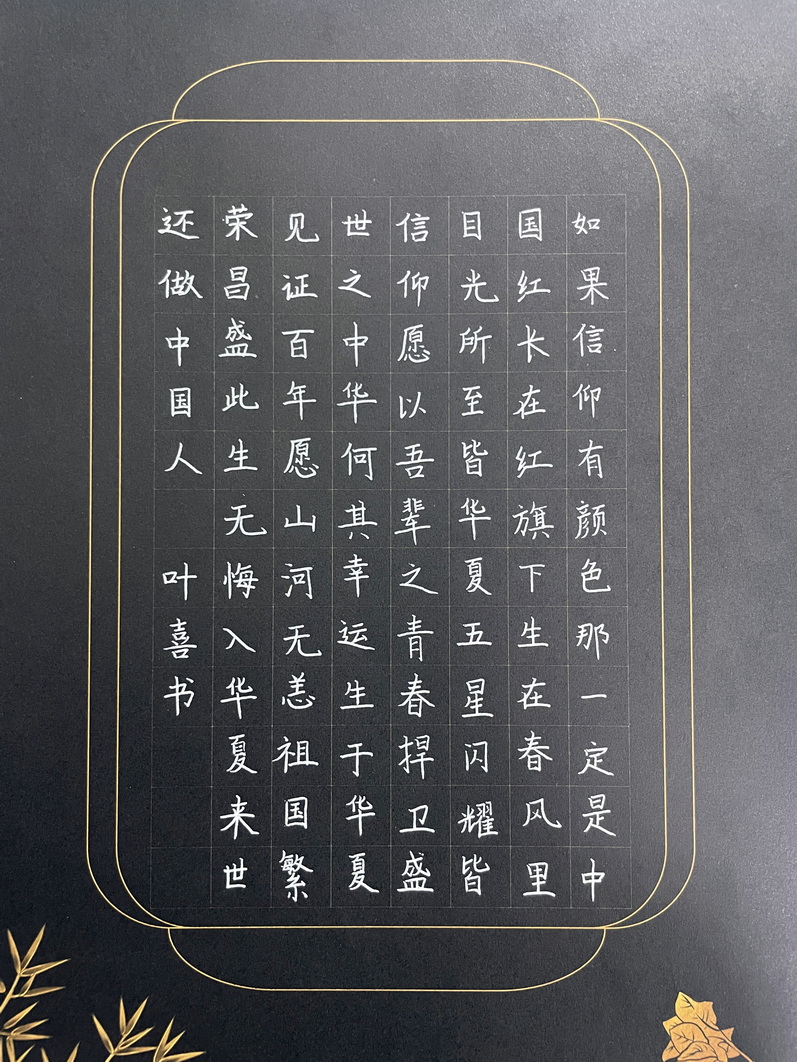 如果信仰有颜色那一定是中
国红长在红旗下生在春风里
目光所至皆华夏五星闪耀皆
信仰愿以吾辈之青春捍卫盛
世之中华何其幸运生于华夏
见证百年愿山河无恙祖国繁
荣昌盛此生无悔入华夏来世
还做中国人 叶喜书